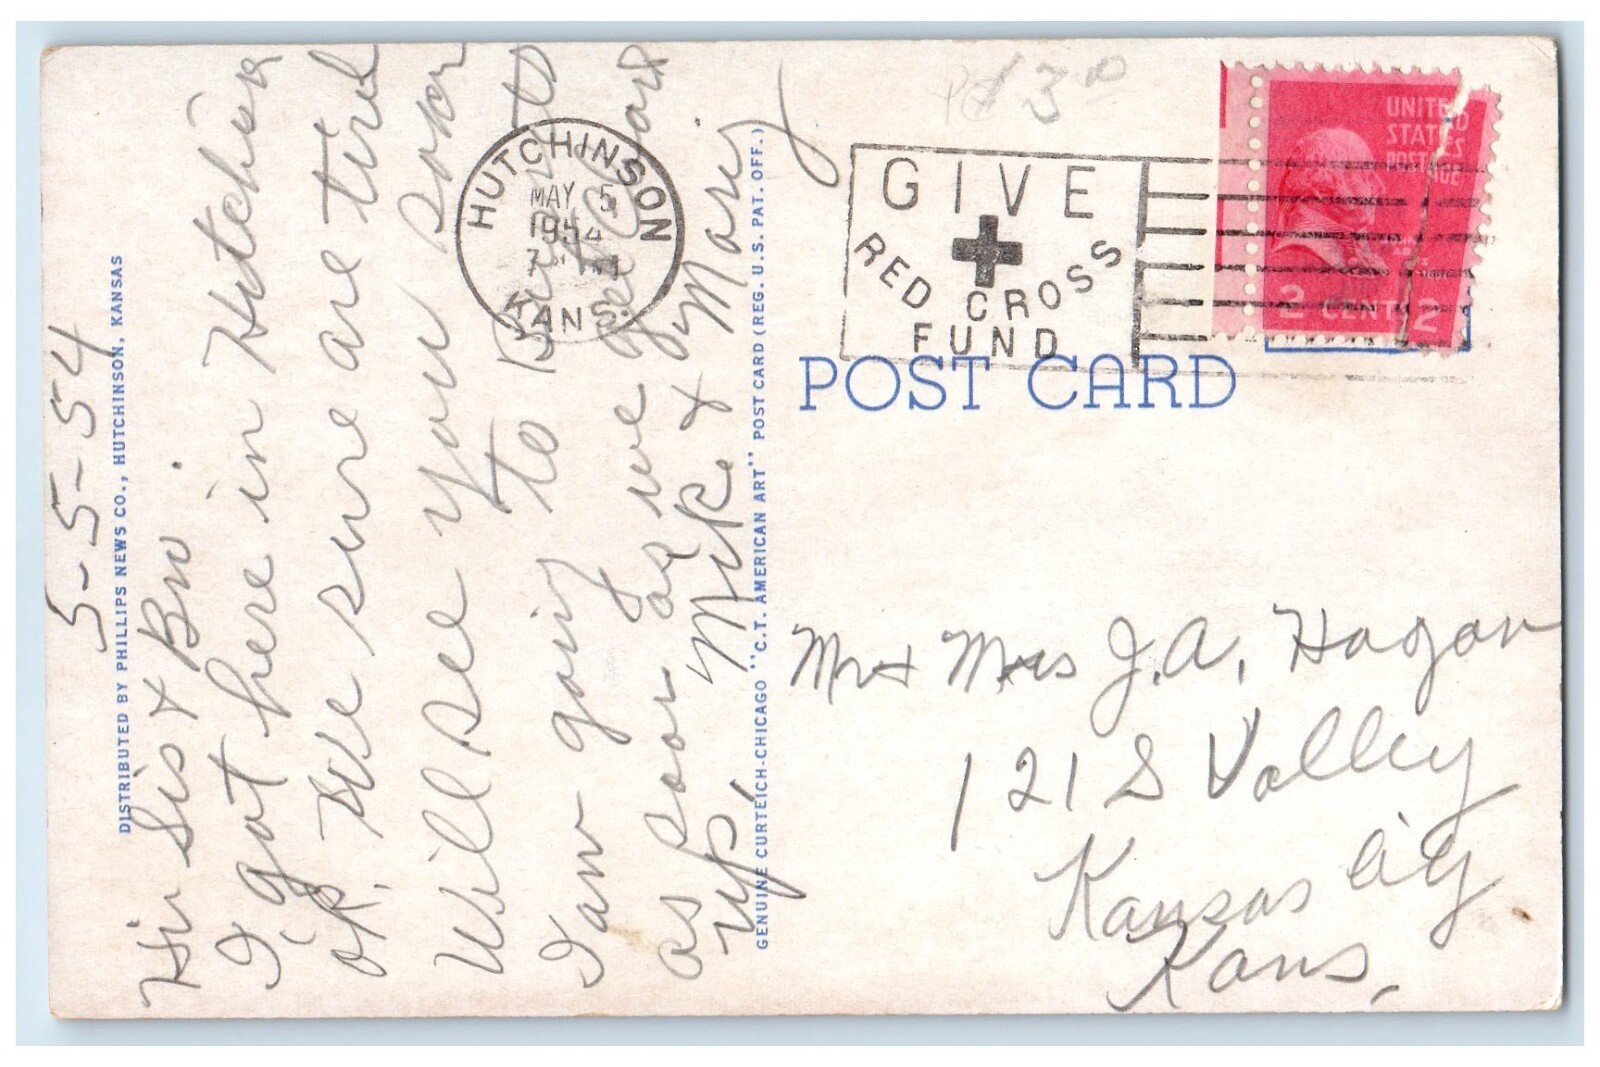 5-5-54
Hi Sis & Bro.
I got here in Hutchison
ok. We sure are tired
Will see you soon
I am going to
as soon as we get
up. Mike & Mary
DISTRIBUTED BY PHILLIPS NEWS CO., HUTCHINSON, KANSAS
GENUINE CURTEICH-CHICAGO "C.T. AMERICAN ART" POST CARD (REG. U.S. PAT. OFF.)
HUTCHINSON
MAY 5
1954
KANS.
GIVE
RED CROSS
FUND
UNITED
STATES
POSTAGE
2 CENTS 2
POST CARD
Mr & Mrs J.A. Hagan
121 S Valley
Kansas City
Kans.